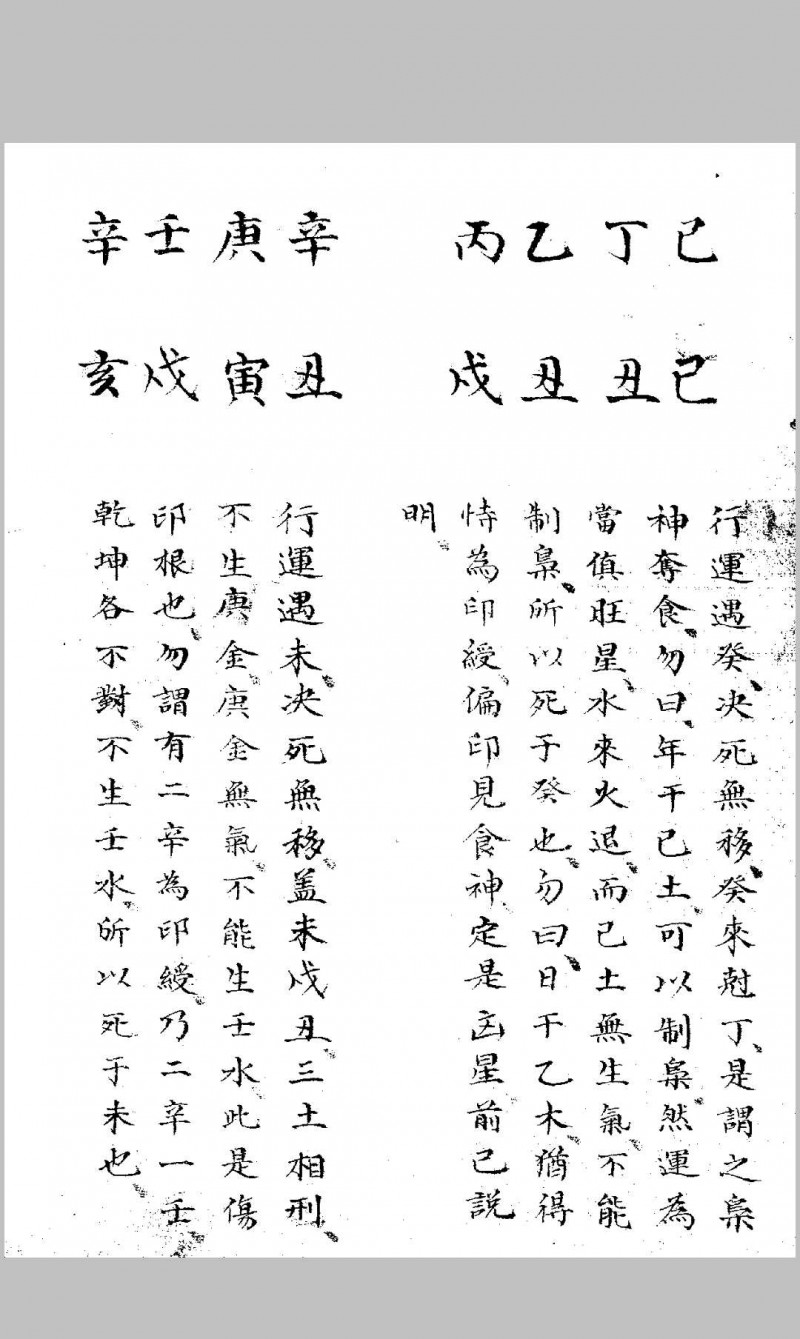 己巳
丁丑
乙丑
丙戌
行運遇癸、决死無移、癸來尅丁、是謂之梟
神奪食、勿曰、年干己土、可以制梟、然運為
當值旺星、水來火退、而己土無生氣、不能
制梟、所以死于癸也、勿曰、日干乙木、猶得
恃為印綬、偏印見食神、定是凶星、前已説
明、
辛丑
庚寅
壬戌
辛亥
行運遇未、决死無移、盖未戌丑、三土相刑、
不生庚金、庚金無氣、不能生壬水、此是傷
印根也、勿謂有二辛為印綬、乃二辛一壬、
乾坤各不對、不生壬水、所以死于未也、